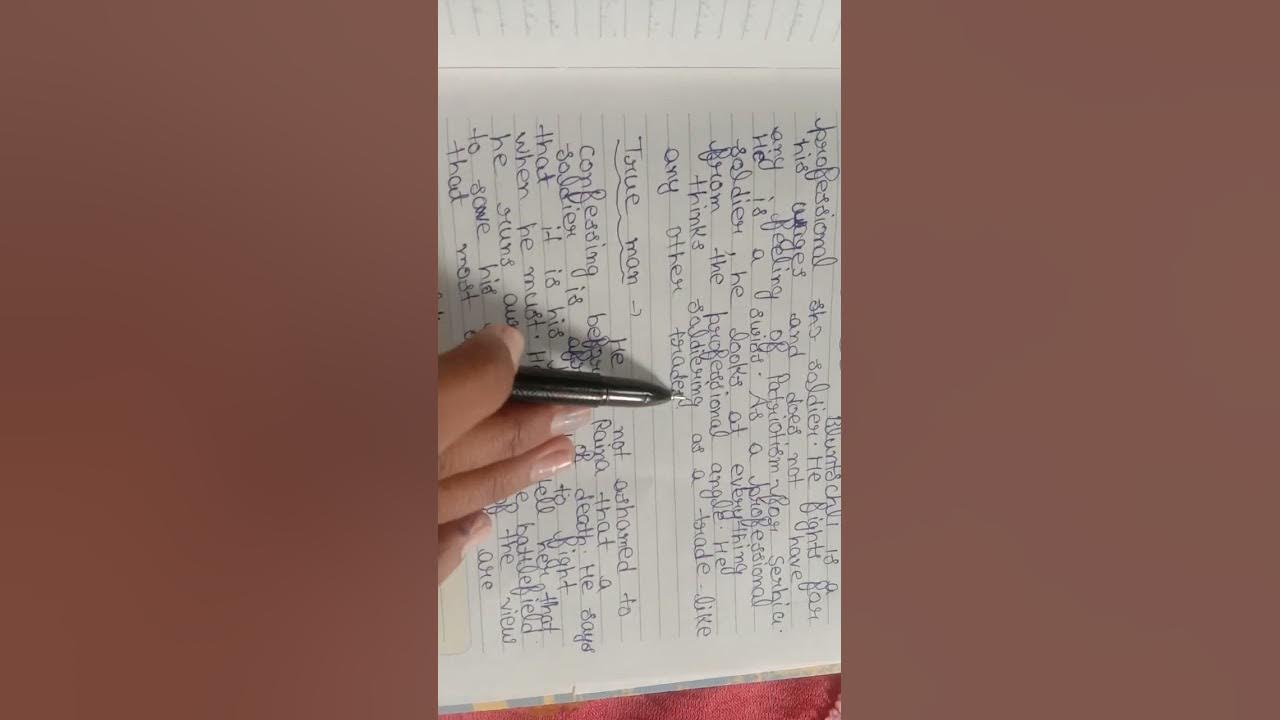 Bluntschli is a
professional soldier. He fights for
his wages and does not have
any feeling of Patriotism for Serbia.
He is a swiss. As a professional
soldier, he looks at everything
from the professional angle. He
thinks soldiering as a trade-like
any other trades.
True man → He not ashamed to
confessing before Raina that a
soldier is of death. He says
that it is his to fight
when he must. tell her that
he runs battlefield
to save his of the view
that most are